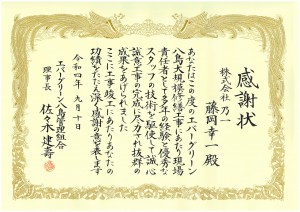 感謝状
株式会社 乃一
藤岡幸一殿
あなたはこの度のエバーグリーン
八島大規模修繕工事にあたり現場
責任者として多年の経験と優秀な
スタッフの技術を駆使して誠心
誠意工事の完成に尽力され抜群の
成果をあげられました
ここに工事竣工にあたりあなたの
功績をたたえ深く感謝の意を表します
令和四年九月十日
エバーグリーン八島管理組合
理事長 佐々木建壽